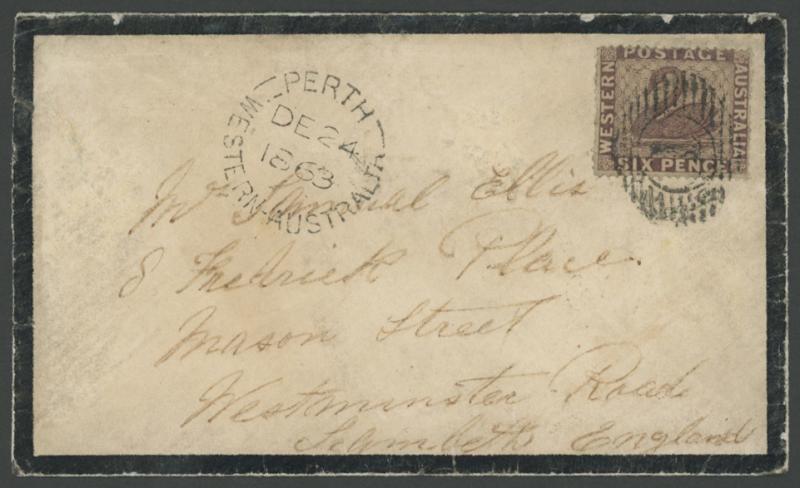 POSTAGE
WESTERN
AUSTRALIA
SIX PENCE
PERTH
DE 24
1863
WESTERN-AUSTRALIA
Mr Samual Ellis
8 Fredrick Place
Mason Street
Westminster Road
Lambeth England